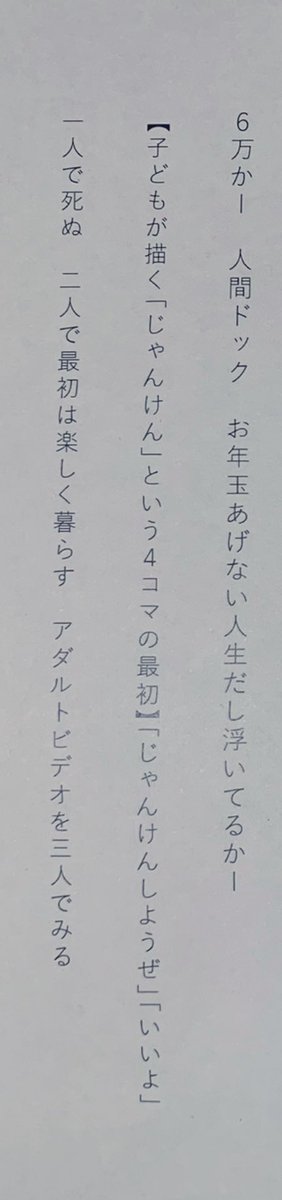 6万かー　人間ドック　お年玉あげない人生だし浮いてるかー
【子どもが描く「じゃんけん」という4コマの最初】「じゃんけんしようぜ」「いいよ」
一人で死ぬ　二人で最初は楽しく暮らす　アダルトビデオを三人でみる